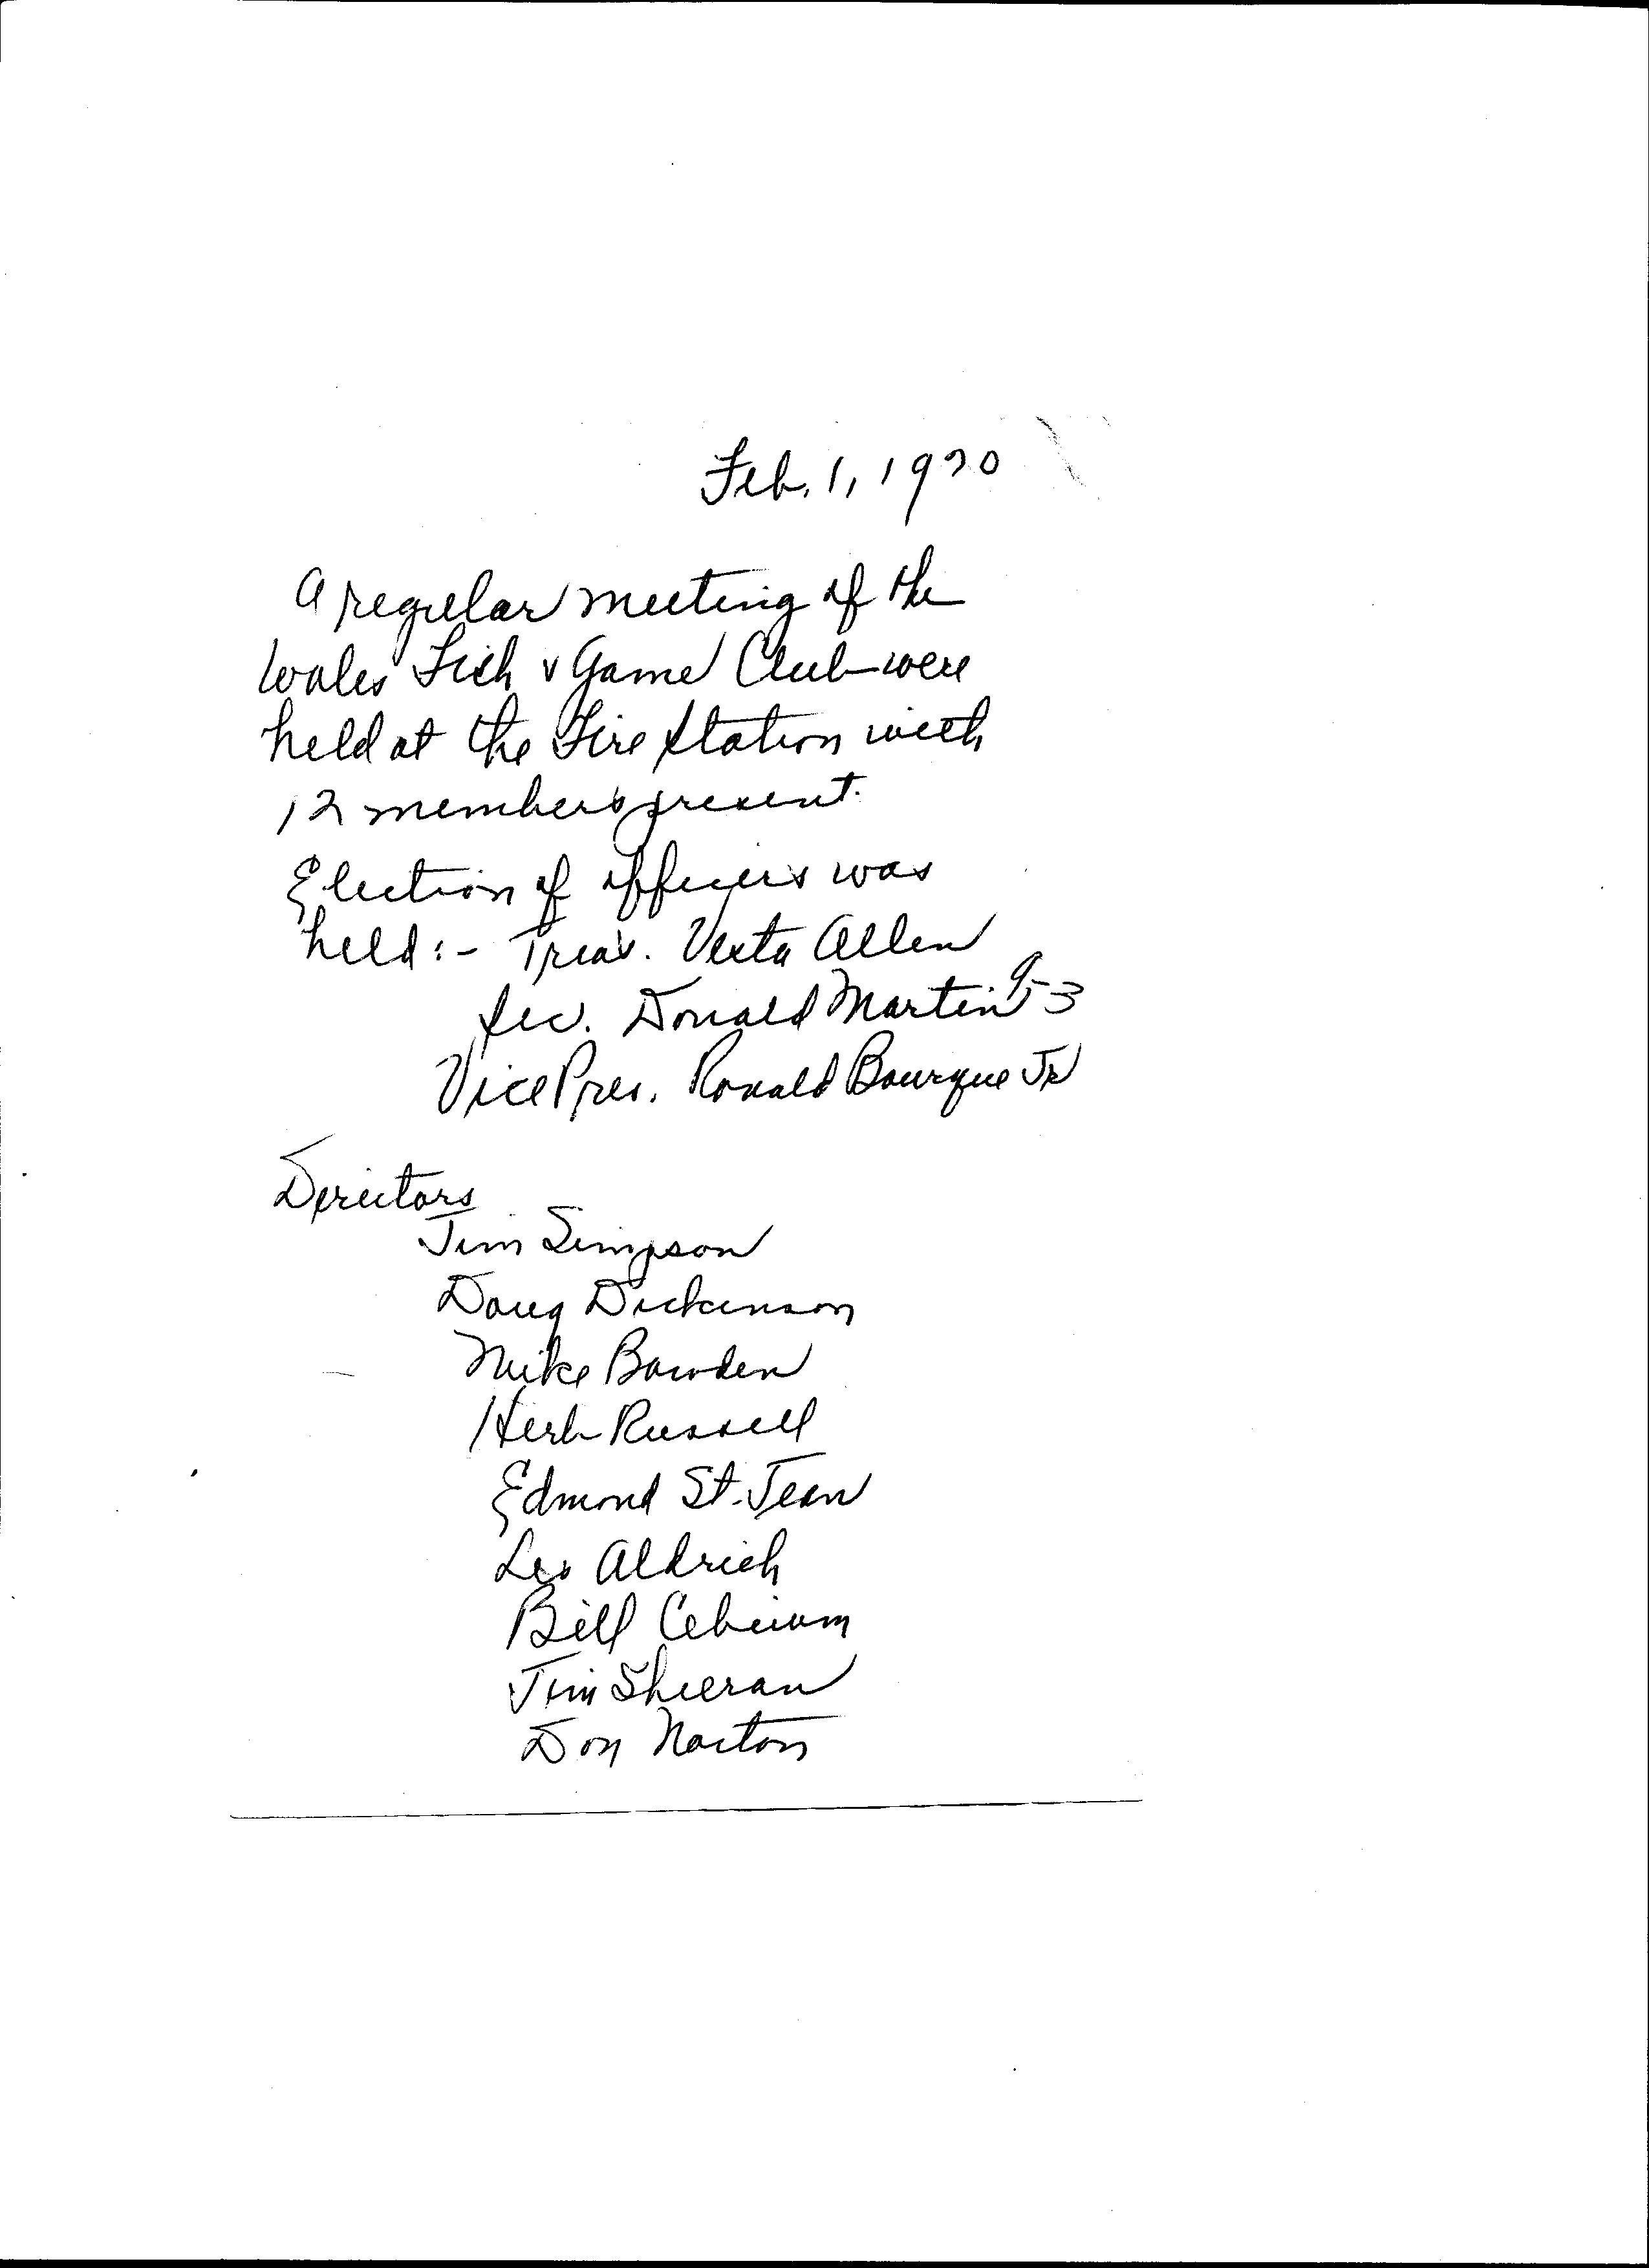 Feb. 1, 1970
A regular meeting of the
Wales Fish & Game Club were
held at the Fire Station with
12 members present.
Election of officers was
held:- Treas. Vesta Allen
Sec. Donald Martin 9-3
Vice Pres. Ronald Bourque Jr
Directors
Jim Simpson
Doug Dickinson
Mike Bowden
Herb Russell
Edmond St. Jean
Leo Aldrich
Bill
Jim Sheeran
Don Norton